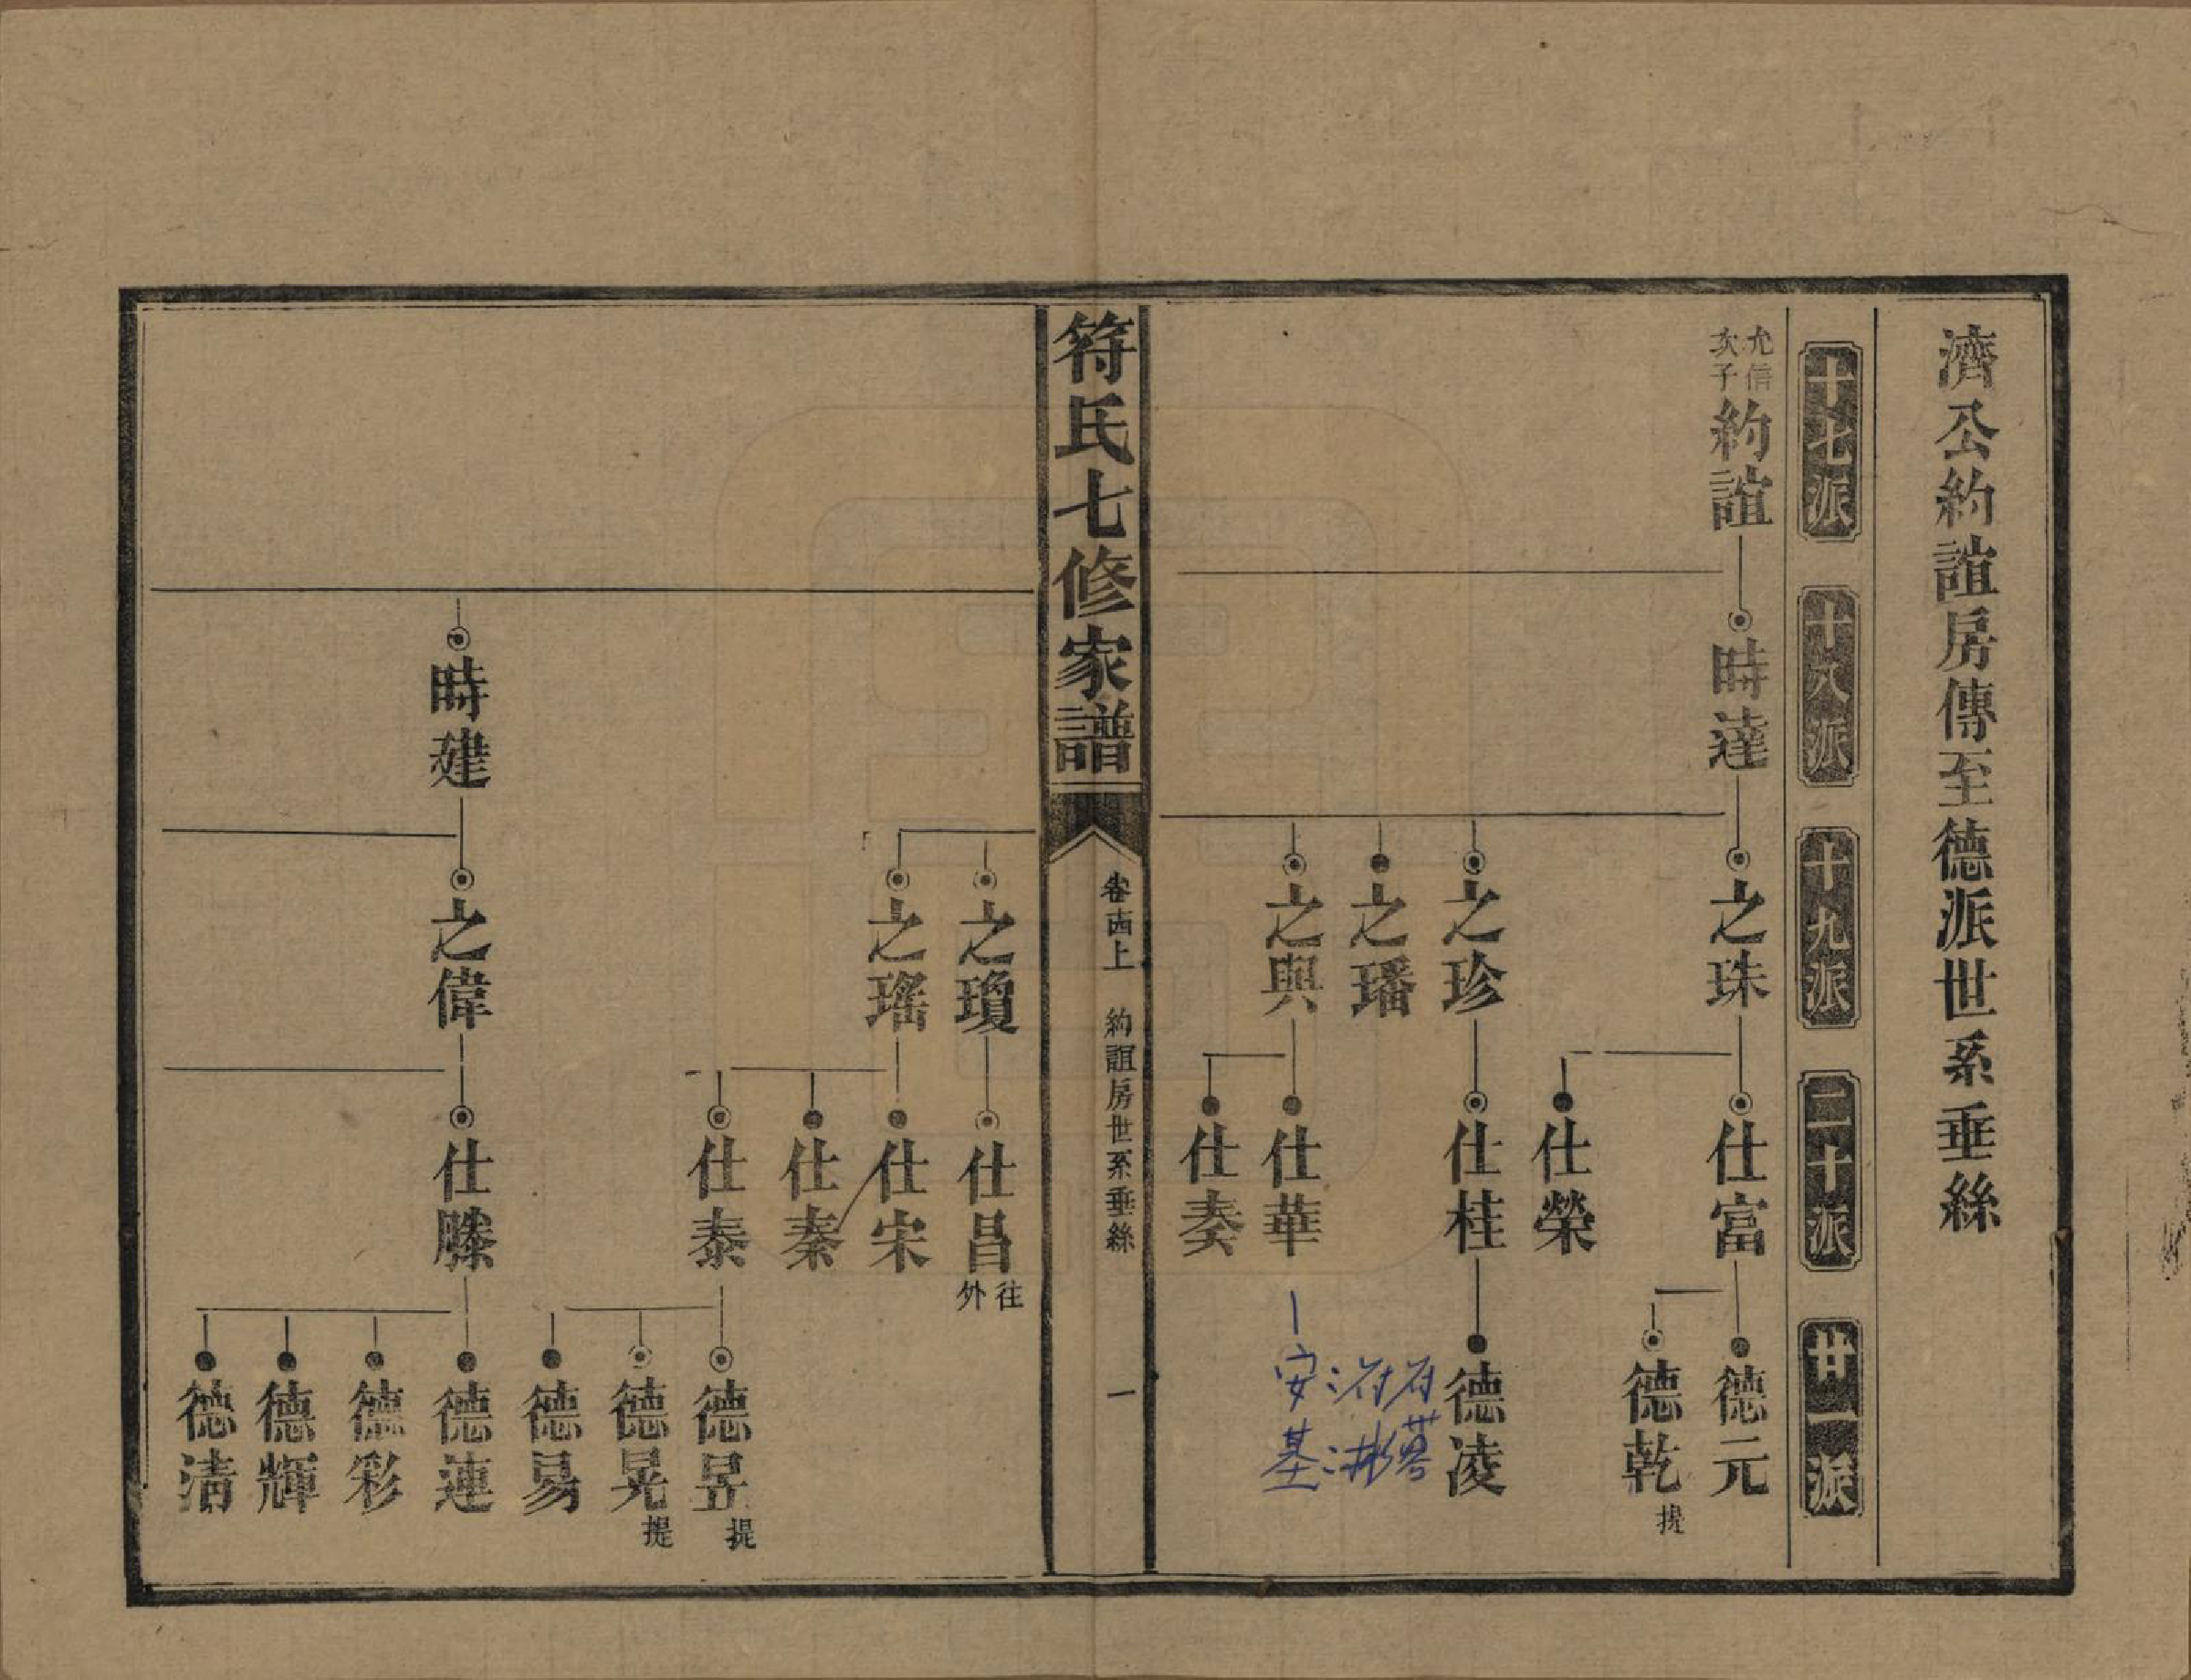 濟公約誼房傳至德派世系垂絲
十七派
十八派
十九派
二十派
廿一派
允信
次子
約誼
時達
之珠
仕富
德元
德乾
提
仕榮
之珍
仕桂
德凌
之璠
之與
仕華
安基
仕奏
符氏七修家譜
卷十四上
約誼房世系垂絲
一
之瓊
仕昌
往
外
之瑤
仕宋
仕秦
仕泰
德昱
提
德晃
提
德易
時建
之偉
仕滕
德連
德彩
德輝
德清